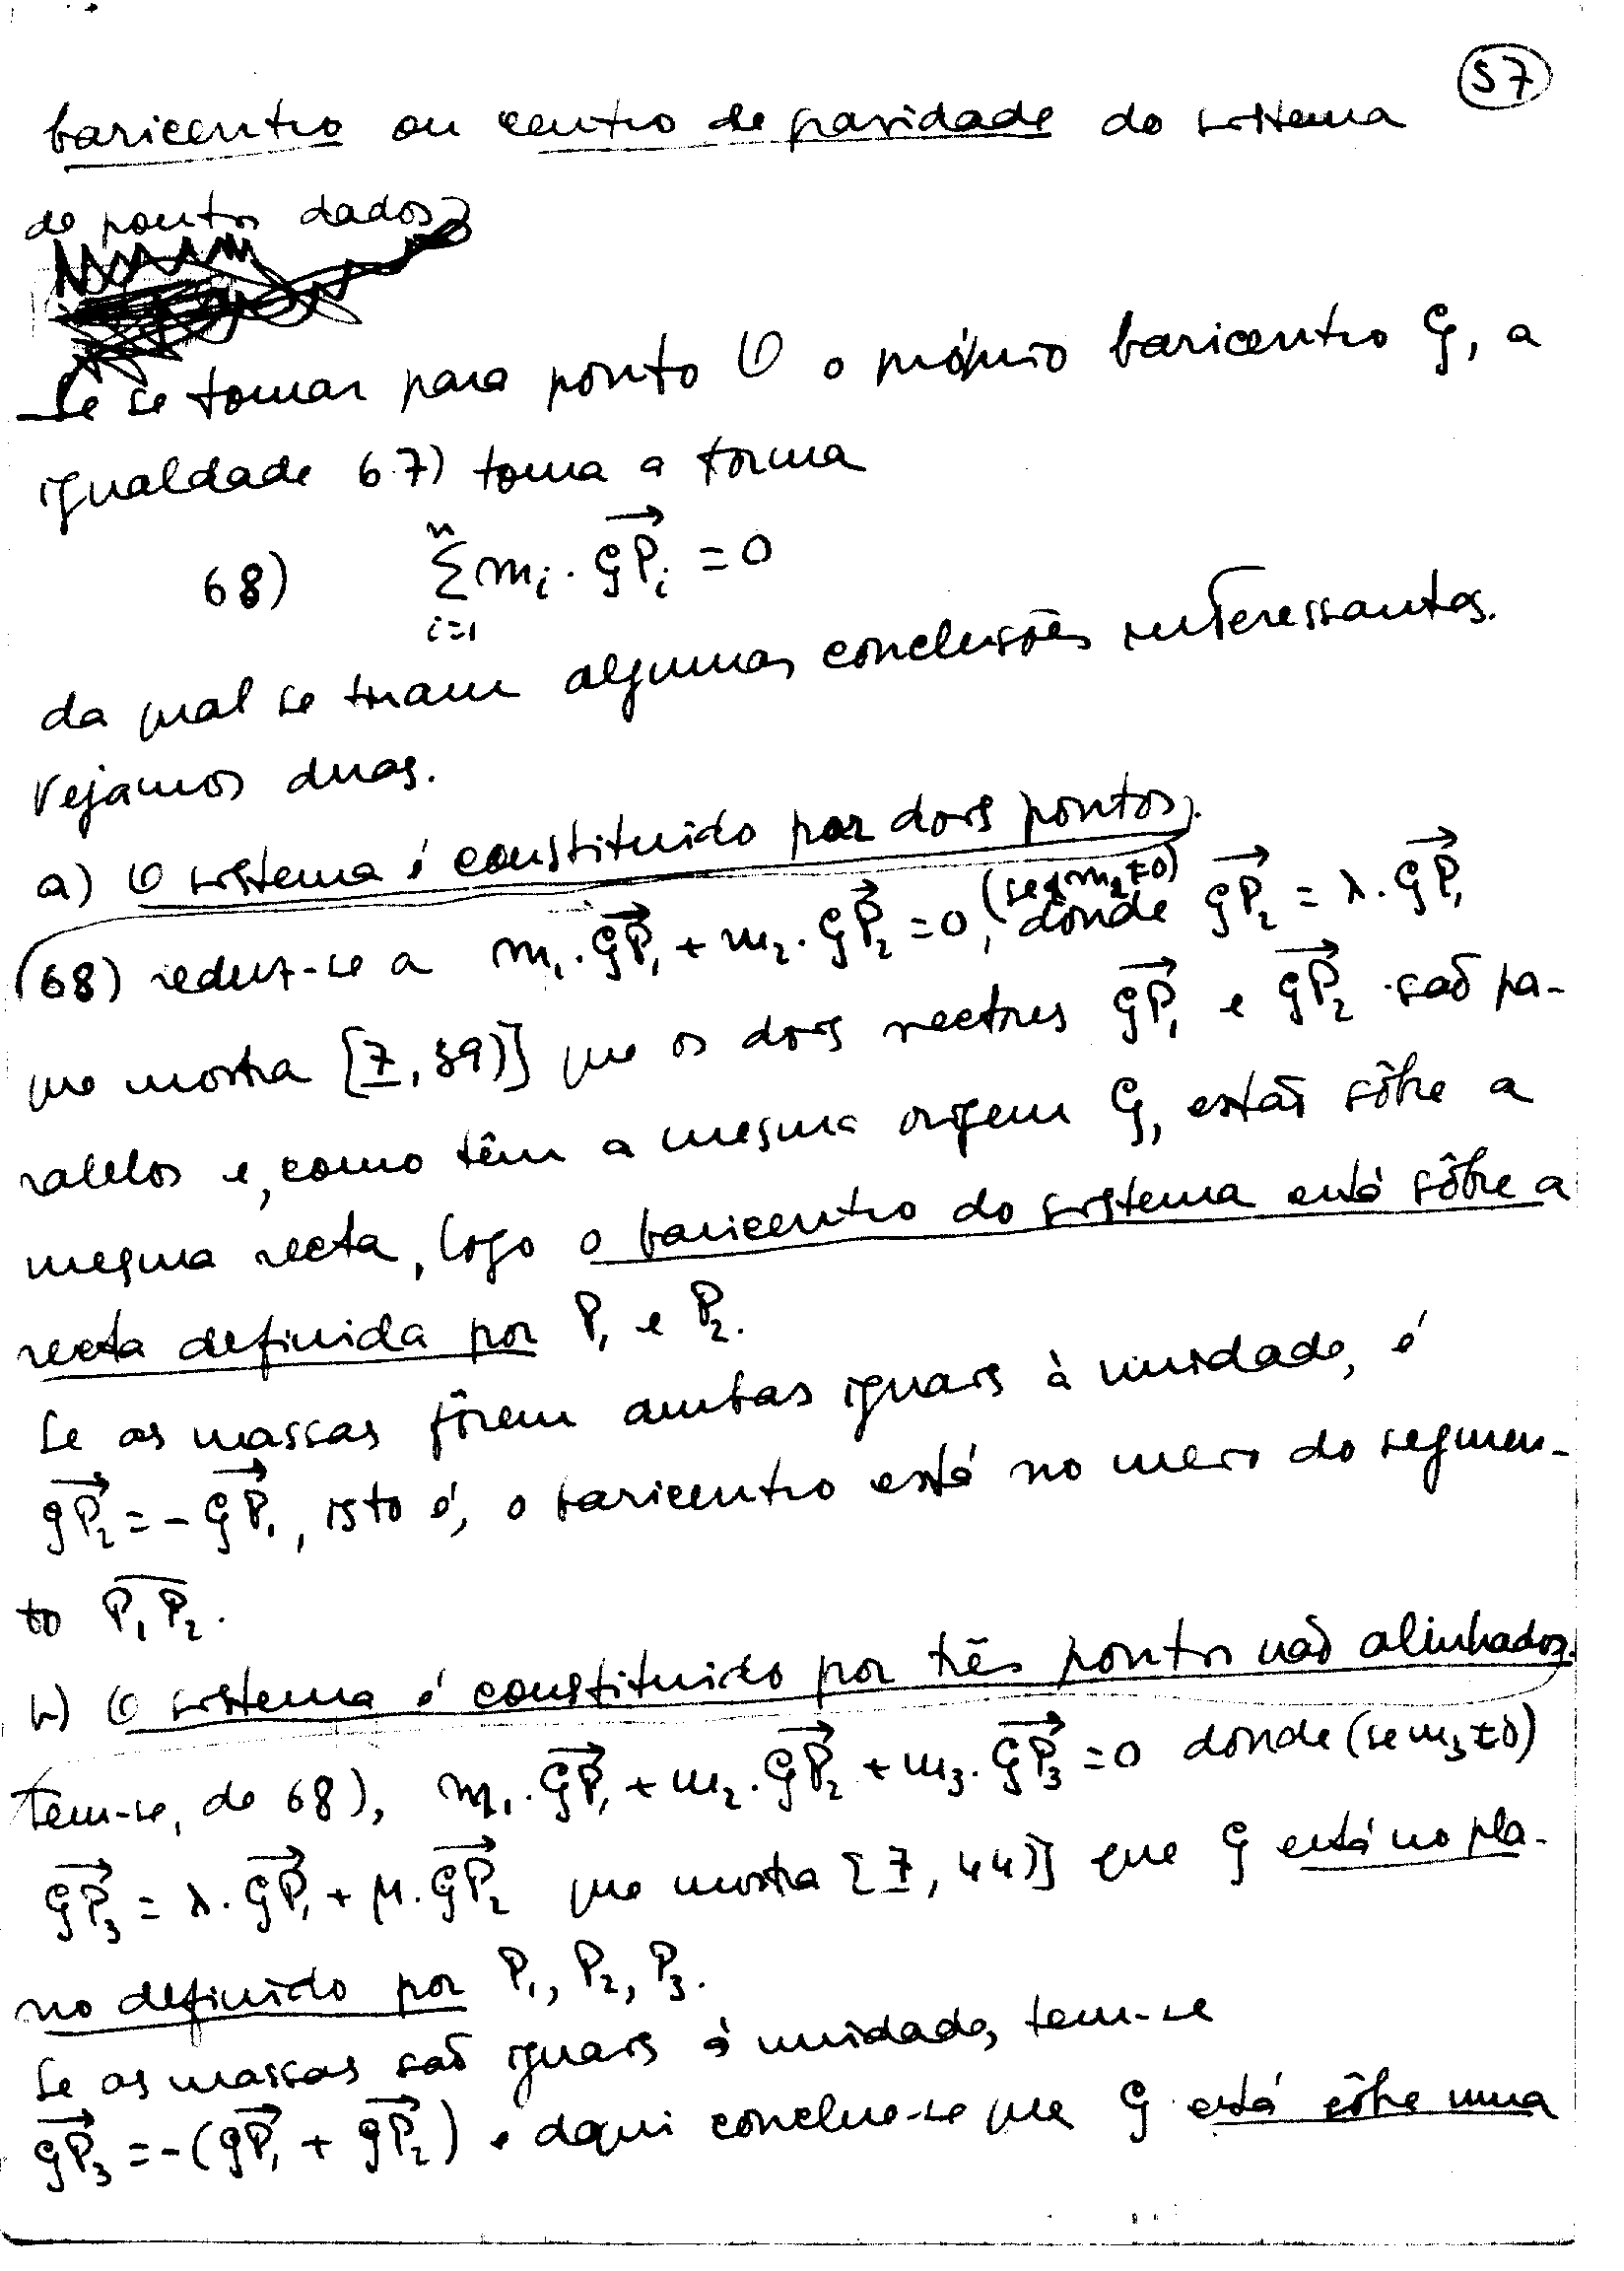 57
baricentro ou centro de gravidade do sistema
de pontos dados
Se se tomar para ponto O o próprio baricentro G, a
igualdade 67) toma a forma
68) \sum_{i=1}^{n} m_i \cdot \overrightarrow{GP_i} = 0
da qual se tiram algumas conclusões interessantes.
Vejamos duas.
a) O sistema é constituido por dois pontos.
(se m_2≠0)
68) reduz-se a m_1·\overrightarrow{GP_1} + m_2·\overrightarrow{GP_2} = 0, donde \overrightarrow{GP_2} = λ·\overrightarrow{GP_1}
que mostra [7, 39)] que os dois vectores \overrightarrow{GP_1} e \overrightarrow{GP_2} são pa-
ralelos e, como têm a mesma origem G, estão sôbre a
mesma recta, logo o baricentro do sistema está sôbre a
recta definida por P_1 e P_2.
Se as massas fôrem ambas iguais à unidade, é
\overrightarrow{GP_2} = -\overrightarrow{GP_1}, isto é, o baricentro está no meio do segmen-
to \overline{P_1P_2}.
b) O sistema é constituido por três pontos não alinhados.
Tem-se, de 68), m_1·\overrightarrow{GP_1} + m_2·\overrightarrow{GP_2} + m_3·\overrightarrow{GP_3} = 0 donde (se m_3≠0)
\overrightarrow{GP_3} = λ·\overrightarrow{GP_1} + μ·\overrightarrow{GP_2} que mostra [7, 44)] que G está no pla-
no definido por P_1, P_2, P_3.
Se as massas são iguais à unidade, tem-se
\overrightarrow{GP_3} = -(\overrightarrow{GP_1} + \overrightarrow{GP_2}) e daqui conclue-se que G está sôbre uma